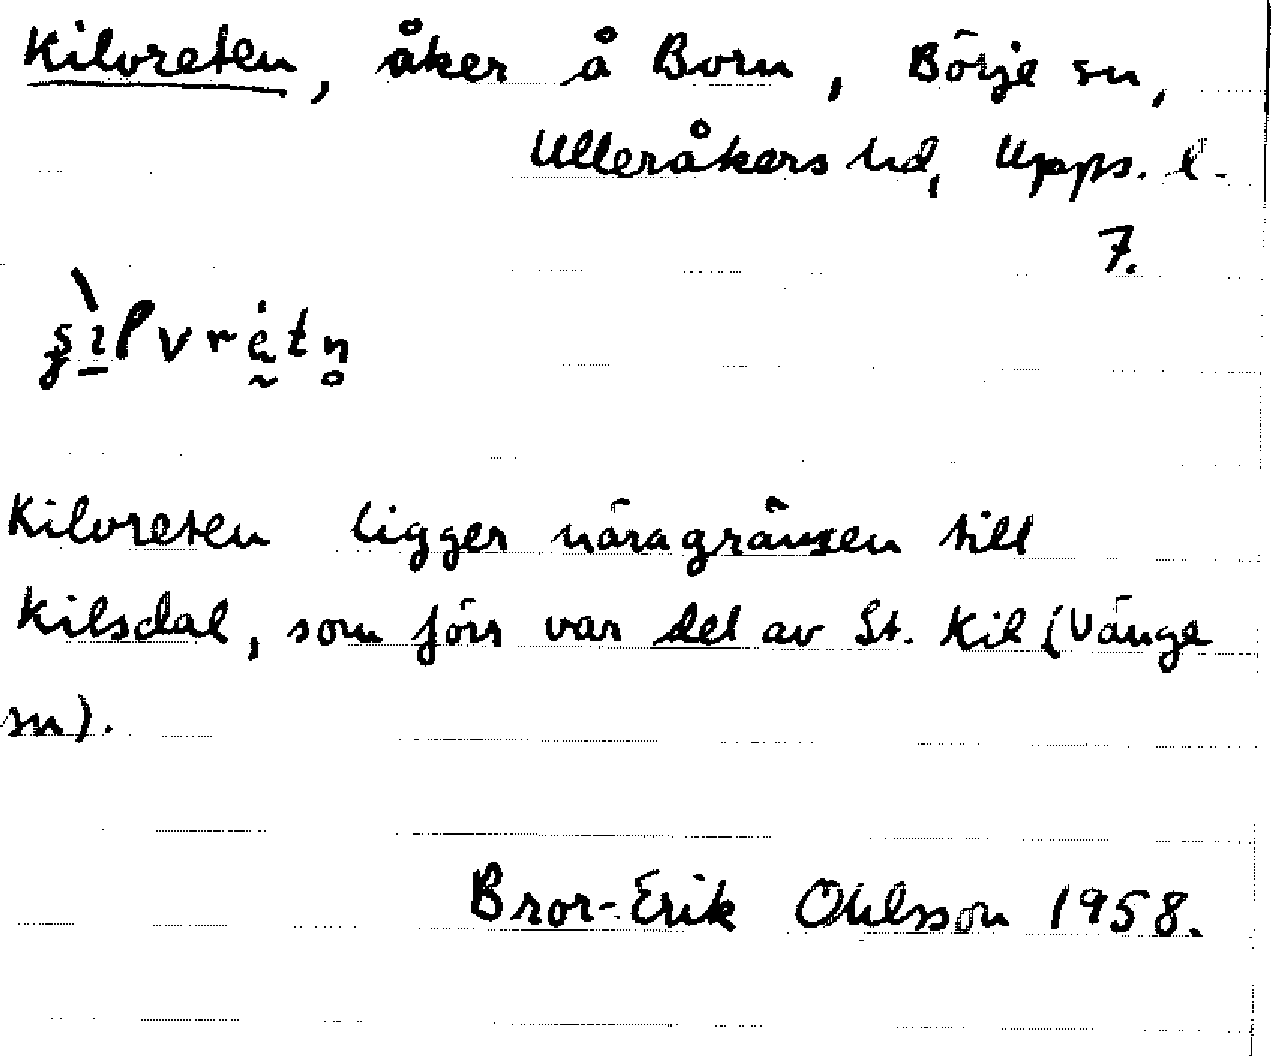 Kilvreten, åker å Born, Börje sn,
Ulleråkers hd, Upps. l.
7.
Kilvreten ligger nära gränsen till
Kilsdal, som förr var del av St. Kil (Vänge
sn).
Bror-Erik Ohlsson 1958.